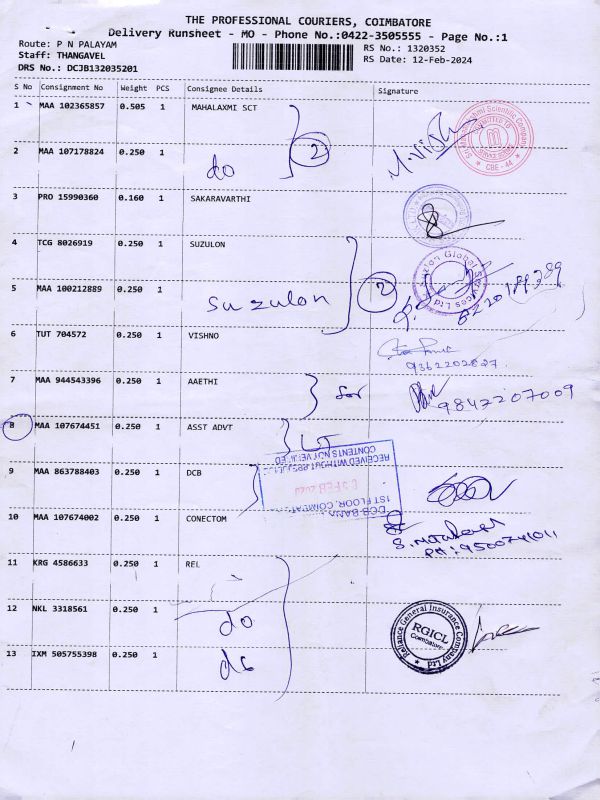 THE PROFESSIONAL COURIERS, COIMBATORE
Delivery Runsheet - MO - Phone No.:0422-3505555 - Page No.:1
Route: P N PALAYAM
RS No.: 1320352
Staff: THANGAVEL
RS Date: 12-Feb-2024
DRS No.: DCJB132035201
S No Consignment No Weight PCS Consignee Details Signature
1 MAA 102365857 0.505 1 MAHALAXMI SCT
2 MAA 107178824 0.250 1 do 2
CBE - 44
3 PRO 15990360 0.160 1 SAKARAVARTHI
4 TCG 8026919 0.250 1 SUZULON
5 MAA 100212889 0.250 1 suzulon 2
6 TUT 704572 0.250 1 VISHNO
9362202827
7 MAA 944543396 0.250 1 AAETHI
9842207009
8 MAA 107674451 0.250 1 ASST ADVT
RECEIVED WITHOUT
CONTENTS NOT VERIFIED
9 MAA 863788403 0.250 1 DCB
DCB BANK
1ST FLOOR,
10 MAA 107674002 0.250 1 CONECTOM
PH: 9500741011
11 KRG 4586633 0.250 1 REL
12 NKL 3318561 0.250 1 do
Reliance General Insurance Company Ltd
RGICL
Coimbatore
13 IXM 505755398 0.250 1 do